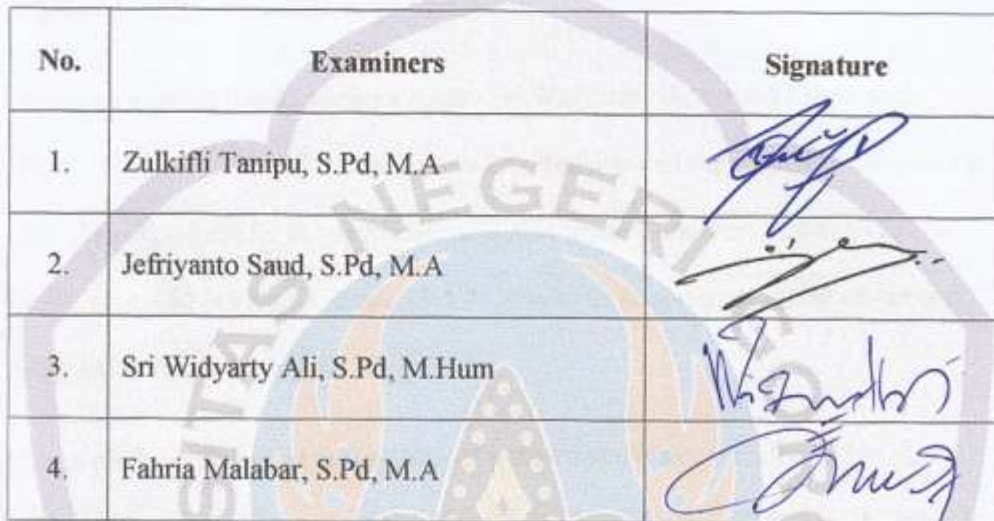 No. Examiners Signature
1. Zulkifli Tanipu, S.Pd, M.A
2. Jefriyanto Saud, S.Pd, M.A
3. Sri Widyarty Ali, S.Pd, M.Hum
4. Fahria Malabar, S.Pd, M.A
SITAS NEGERI GO